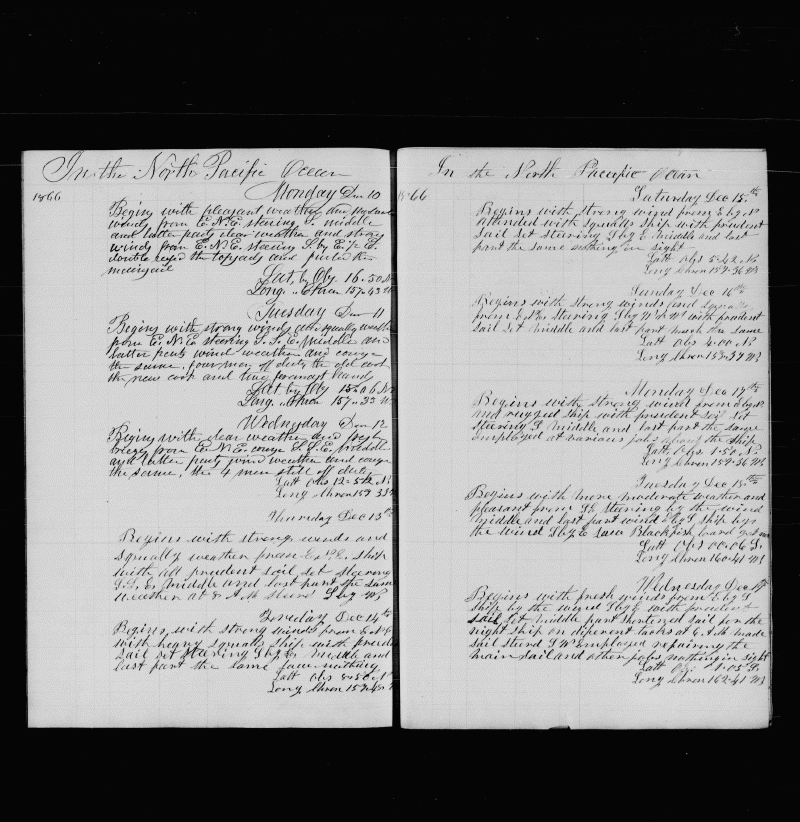 In the North Pacific Ocean
1866
Monday Dec 10
Begins with pleasant weather and
winds from E.N.E. steering S. middle
and latter parts clear weather and strong
winds from E.N.E. stearing S by E. 1/2 E.
double reefed the topsails and furled the
mainsail
Lat. by Obs 16..50 N
Long. .. Chron 157..43 W
Tuesday Dec 11
Begins with strong winds and squally weather
from E.N.E. stearing S.S.E. Middle and
latter parts wind weather and course
the same. four men off duty the old cook
the new cook and two foremast hands
Lat by Oby 15..06 N
Long. .. Chron 157..33 W
Wednyday Dec 12
Begins with clear weather and fresh
breeze from E.N.E. course S.S.E. middle
and latter parts wind weather and course
the same, the 4 men still off duty
Latt Obs 12-52 N.
Long Chron 157 33 W
Thursday Dec 13th
Begins with strong winds and
squally weather from E N E. Ship
with all prudent sail set steering
S.S.E. Middle and last part the same
weather at 8 A.M. steerd S by W
Frieday Dec 14th
Begins with strong winds from E N E
with heavy squalls Ship with prudent
sail set stearing S by E middle and
last part the same saw nothing
Latt Obs 8-50 N
Long Chron 159-45 W
In the North Pacific Ocean
1866
Saturday Dec 15th
Begins with strong wind from E by N
attended with squalls ship with prudent
sail set stearing S by E Middle and last
part the same nothing in sight
Latt Obs 5-42 N.
Long Chron 159-36 W
Sunday Dec 16th
Begins with strong winds and squalls
from steering S by with prudent
sail set middle and last part much the same
Latt Obs 4-00 N
Long Chron 159-39 W
Monday Dec 17th
Begins with strong wind from E by N
and rugged ship with prudent sail set
steering S middle and last part the same
employed at various jobs about the ship
Latt Obs 1-50 N.
Long Chron 159-36 W
Tuesday Dec 18th
Begins with more moderate weather and
pleasant from S E steering by the wind
middle and last part wind E by S ship by
the wind S by E saw Blackfish
Latt Obs 00-06 S.
Long Chron 160-41 W
Wednesday Dec 19th
Begins with fresh winds from E by S
ship by the wind S by E with prudent
sail set middle part shortened sail for the
night ship on diferent tacks at 6 A.M. made
sail steerd S W Employed repairing the
main sail and other jobs nothing in sight
Latt Obs 1-05 S.
Long Chron 162-41 W